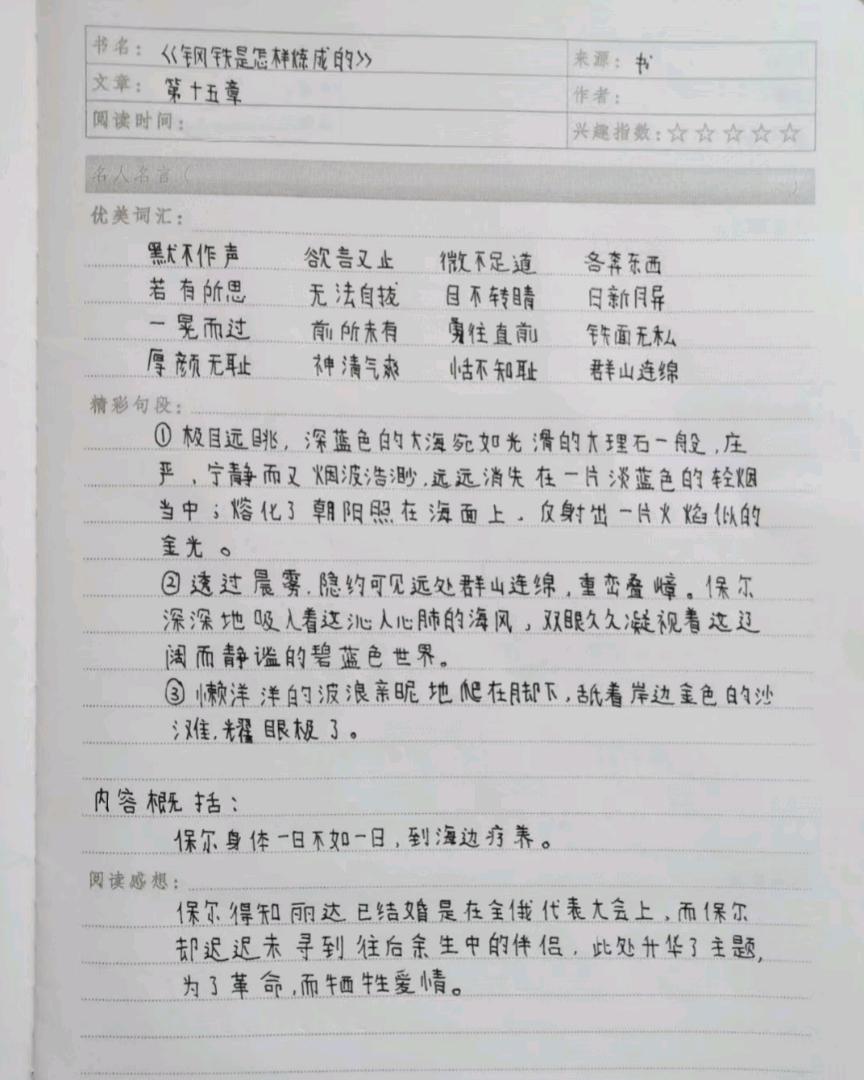 书名：《钢铁是怎样炼成的》 来源：书
文章：第十五章 作者：
阅读时间： 兴趣指数：☆☆☆☆☆
名人名言（ ）
优美词汇：
默不作声 欲言又止 微不足道 各奔东西
若有所思 无法自拔 目不转睛 日新月异
一晃而过 前所未有 勇往直前 铁面无私
厚颜无耻 神清气爽 恬不知耻 群山连绵
精彩句段：
①极目远眺，深蓝色的大海宛如光滑的大理石一般，庄
严、宁静而又烟波浩渺，远远消失在一片淡蓝色的轻烟
当中；熔化了朝阳照在海面上，反射出一片火焰似的
金光。
②透过晨雾，隐约可见远处群山连绵，重峦叠嶂。保尔
深深地吸入着这沁人心肺的海风，双眼久久凝视着这辽
阔而静谧的碧蓝色世界。
③懒洋洋的波浪亲昵地爬在脚下，舐着岸边金色的沙
滩，耀眼极了。
内容概括：
保尔身体一日不如一日，到海边疗养。
阅读感想：
保尔得知丽达已结婚是在全俄代表大会上，而保尔
却迟迟未寻到往后余生中的伴侣，此处升华了主题，
为了革命，而牺牲爱情。